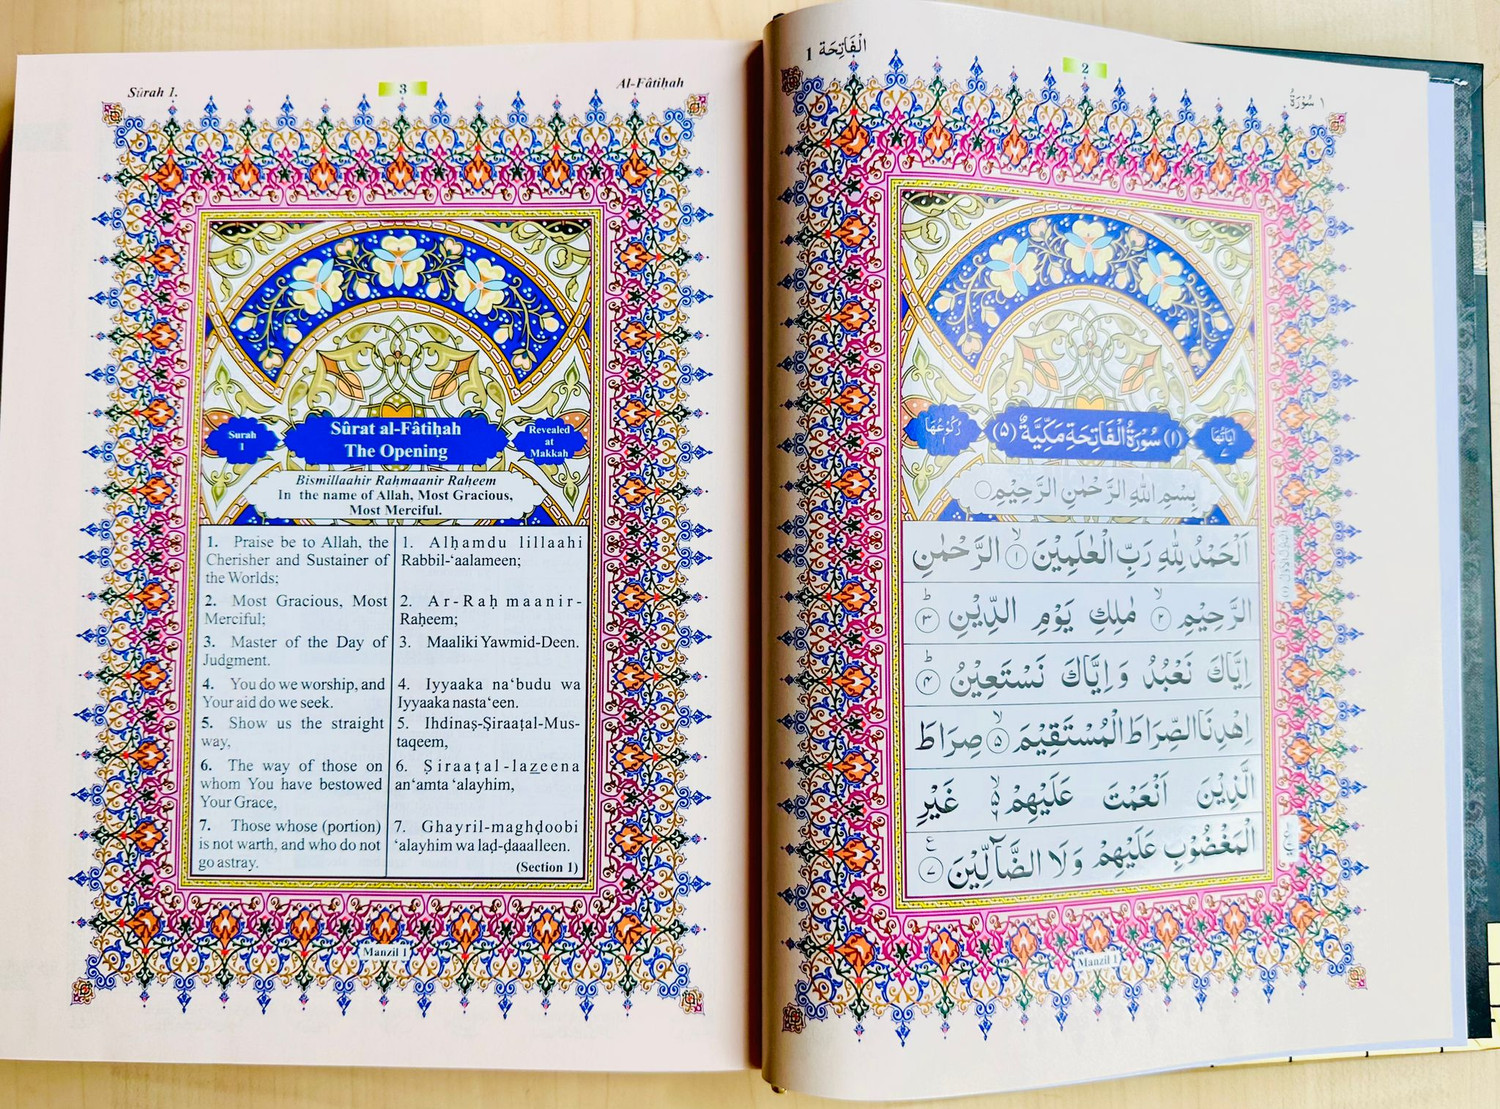 Sûrah 1.
3
Al-Fâtiḥah
Surah
1
Sûrat al-Fâtiḥah
The Opening
Revealed
at
Makkah
Bismillaahir Rahmaanir Raḥeem
In the name of Allah, Most Gracious,
Most Merciful.
1. Praise be to Allah, the
Cherisher and Sustainer of
the Worlds;
2. Most Gracious, Most
Merciful;
3. Master of the Day of
Judgment.
4. You do we worship, and
Your aid do we seek.
5. Show us the straight
way,
6. The way of those on
whom You have bestowed
Your Grace,
7. Those whose (portion)
is not warth, and who do not
go astray.
1. Alḥamdu lillaahi
Rabbil-‘aalameen;
2. Ar-Raḥmaanir-
Raḥeem;
3. Maaliki Yawmid-Deen.
4. Iyyaaka na‘budu wa
Iyyaaka nasta‘een.
5. Ihdinaṣ-Ṣiraaṭal-Mus-
taqeem,
6. Ṣiraaṭal-lazeena
an‘amta ‘alayhim,
7. Ghayril-maghḍoobi
‘alayhim wa laḍ-ḍaaalleen.
(Section 1)
Manzil 1
الْفَاتِحَة 1
2
سُوْرَةُ ١
اٰيَاتُهَا
٧
(١) سُوْرَةُ الْفَاتِحَةِ مَكِّيَّةٌ (٥)
رُكُوْعُهَا
١
بِسْمِ اللّٰهِ الرَّحْمٰنِ الرَّحِيْمِ
اَلْحَمْدُ لِلّٰهِ رَبِّ الْعٰلَمِيْنَ ١ۙ الرَّحْمٰنِ
الرَّحِيْمِ ٢ۙ مٰلِكِ يَوْمِ الدِّيْنِ ٣ؕ
اِيَّاكَ نَعْبُدُ وَاِيَّاكَ نَسْتَعِيْنُ ٤ؕ
اِهْدِنَا الصِّرَاطَ الْمُسْتَقِيْمَ ٥ۙ صِرَاطَ
الَّذِيْنَ اَنْعَمْتَ عَلَيْهِمْ ۙ۬ غَيْرِ
الْمَغْضُوْبِ عَلَيْهِمْ وَلَا الضَّآلِّيْنَ ٧
Manzil 1